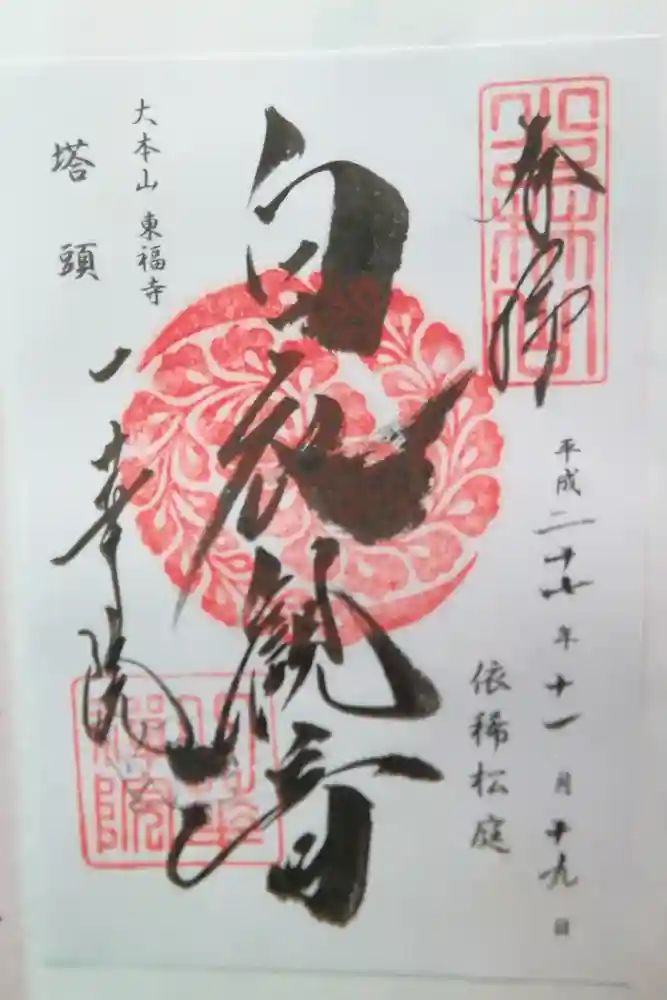 奉拝
平成二十七年十一月十九日
依稀松庭
白衣観音
大本山 東福寺
塔頭
一華院